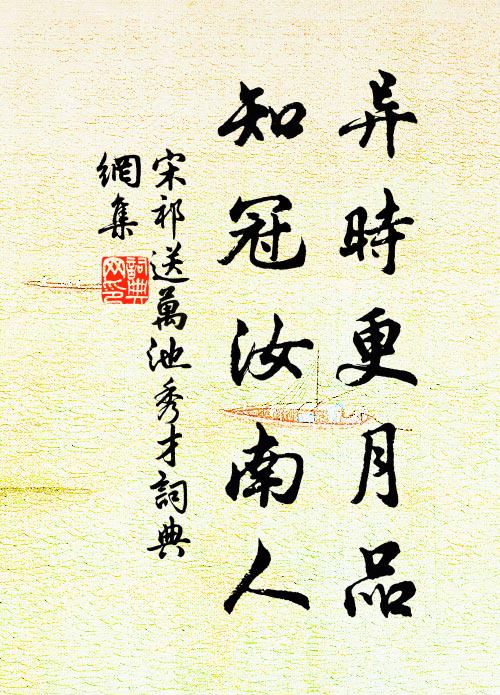 异時更月品
知冠汝南人
宋祁送萬池秀才詞典
網集
詞典
网印